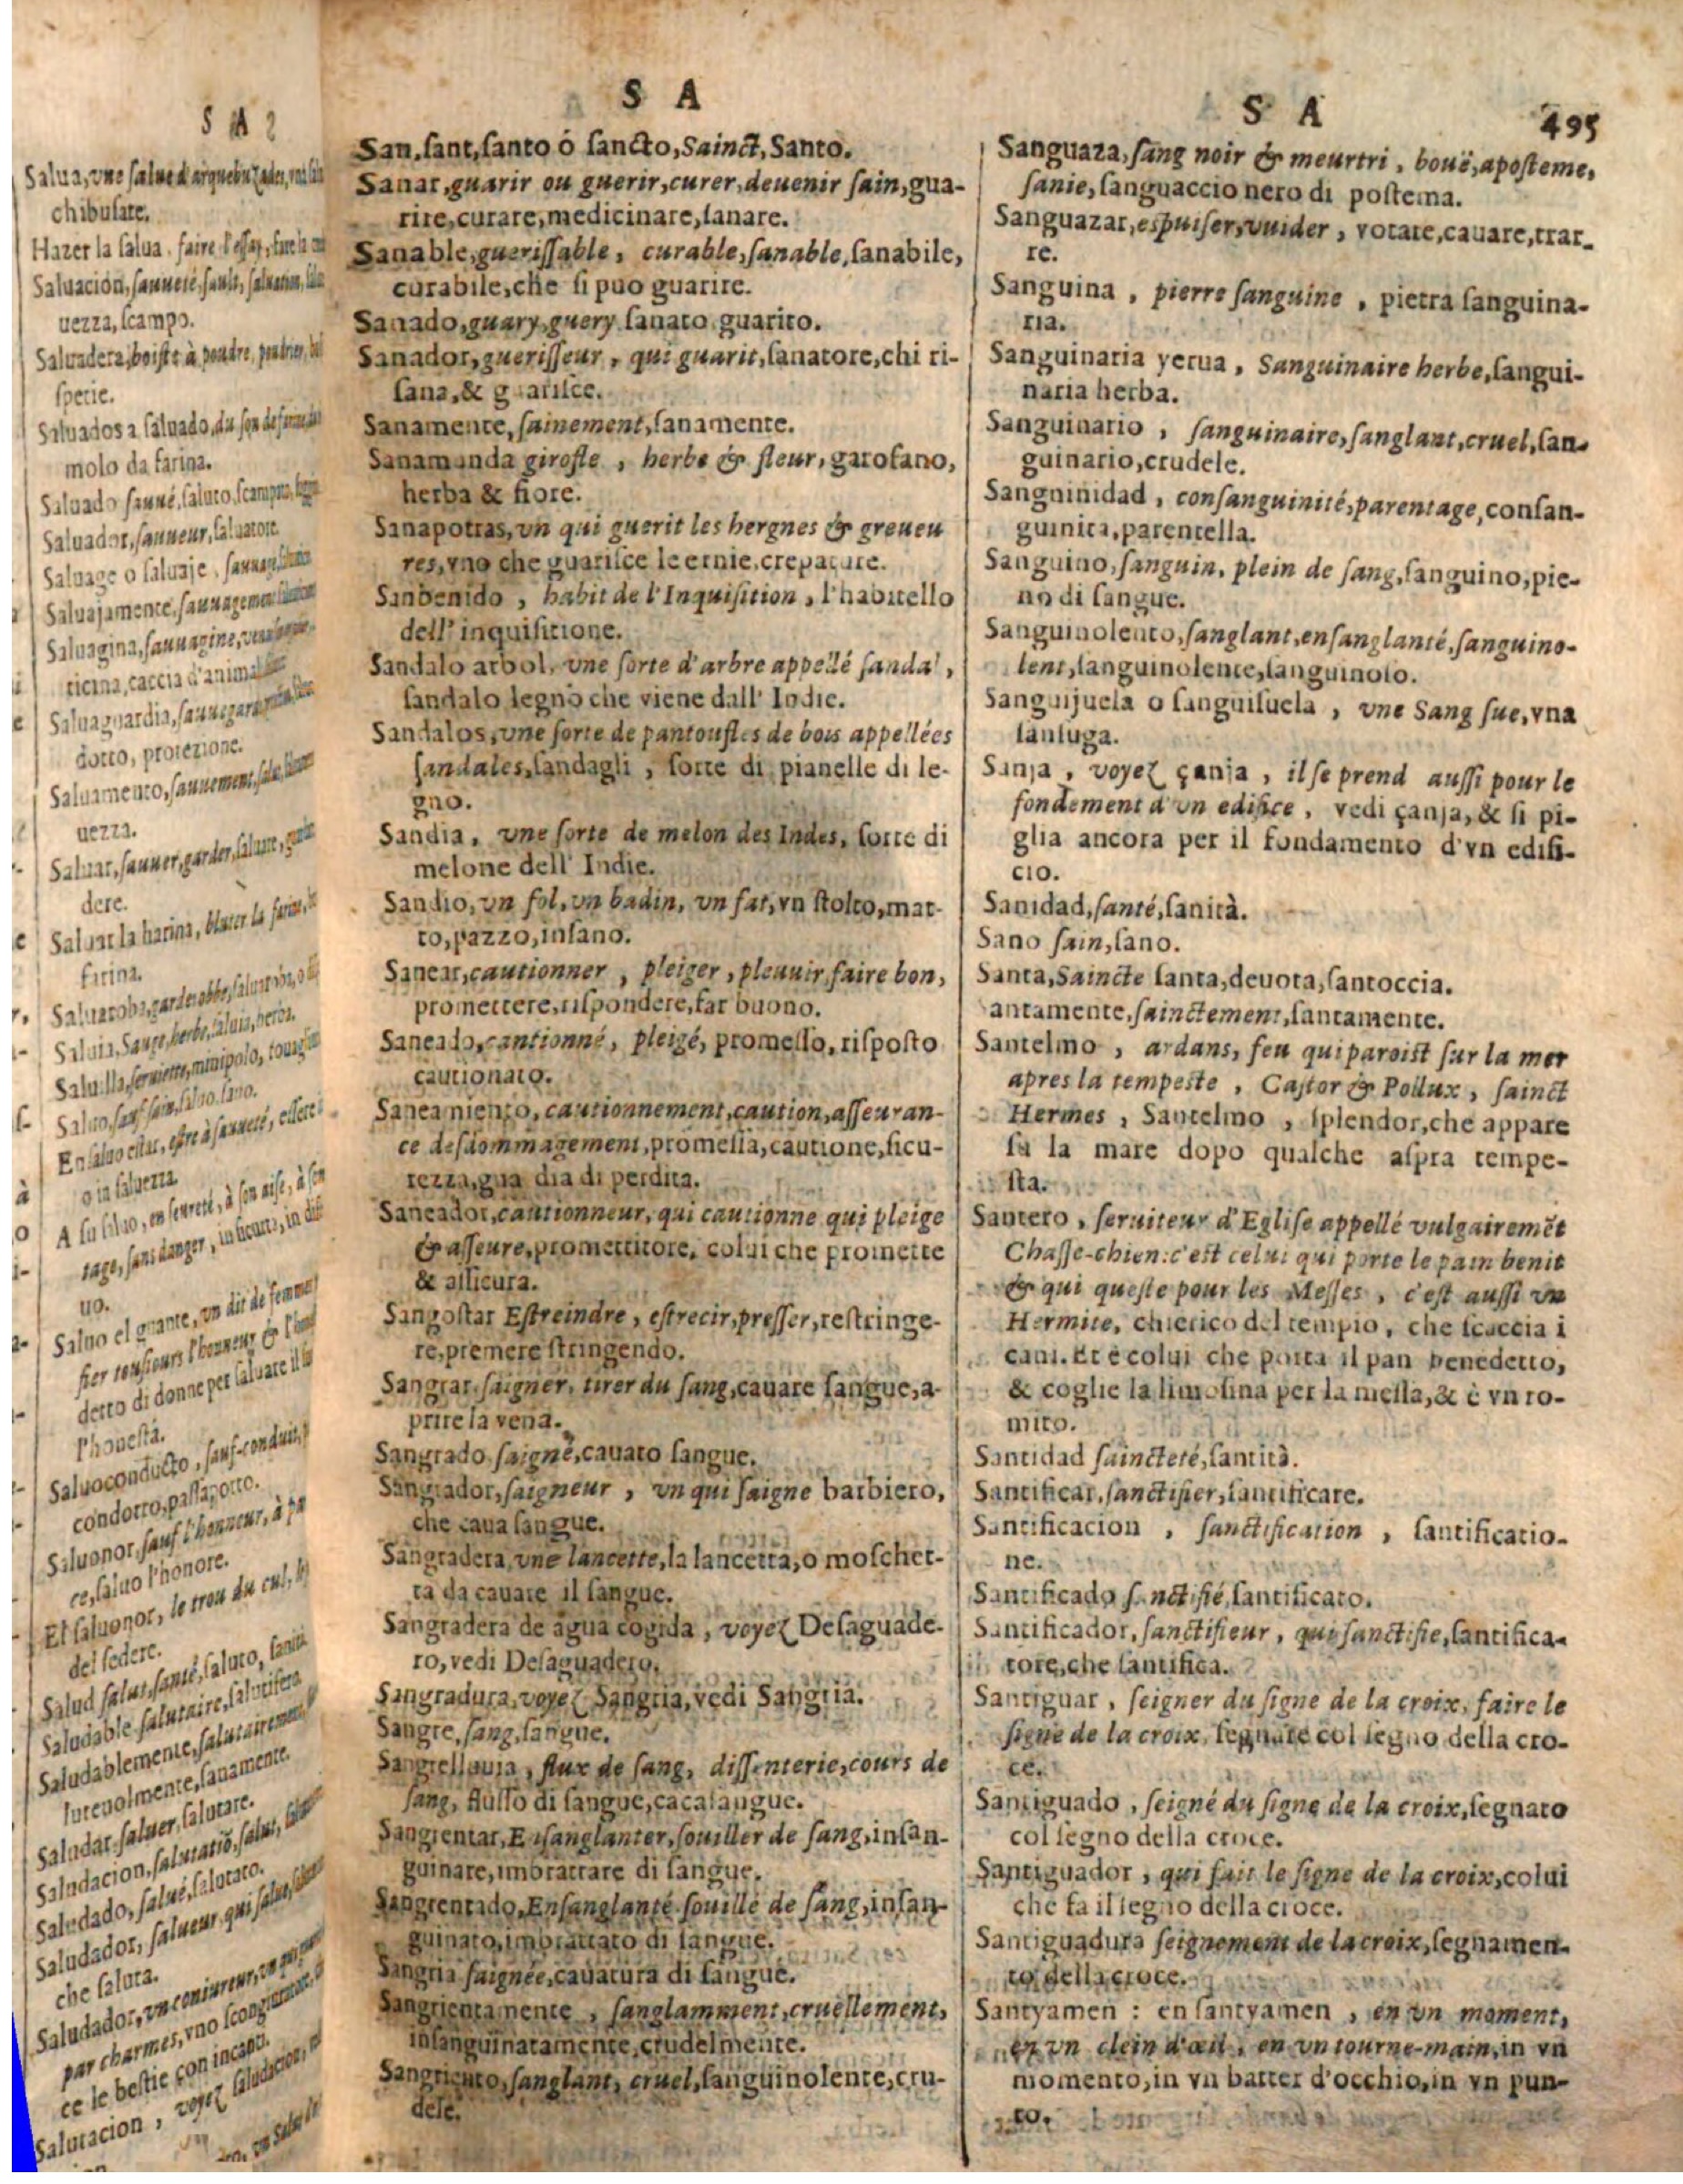 S A
Salua, vne salue d'arquebuzades,
chibusate.
Hazer la salua, faire l'essay, fare la
Saluacion, sauueté, salut, saluation,
uezza, scampo.
Saluadera, boiste à poudre,
Saluados a saluado, du son de farine
molo da farina.
Saluado sauué, saluto, scampato,
Saluador, sauueur, saluatore.
Saluage o saluaje, sauuage,
Saluajamente, sauuagement
Saluagina, sauuagine,
ticina, caccia d'animali
Saluaguardia,
dotto, protezione.
Saluamento, sauuement,
uezza.
Saluar, sauuer, garder, saluare,
dere.
Saluar la harina, bluter la farine,
farina.
Saluaroba,
Saluia, Sauge, herbe, saluia, herba.
Saluilla, seruiette, mimipolo,
Saluo, sauf, sain, saluo, sano.
En saluo estar, estre à sauueté, essere
o in saluezza.
A su saluo, en seureté, à son aise, à son
tage, sans danger, in sicurtà, in
uo.
Saluo el guante, on dit de femme
fier tousiours l'honneur & l'
detto di donne per saluare il
l'honestà.
Saluoconducto, sauf-conduit,
condotto, passaporto.
Saluonor, sauf l'honneur, à
ce, saluo l'honore.
El saluonor, le trou du cul,
del sedere.
Salud salut, santé, saluto, sanità
Saludable salutaire, salutifera
Saludablemente, salutairement
lutevolmente, sanamente.
Saludar saluer, salutare.
Saludacion, salutatiõ, salut,
Saludado, salué, salutato.
Saludador, salueur qui salue,
che saluta.
Saludador, vn coniureur,
par charmes, vno scongiuratore,
ce le bestie con incanti.
Salutacion, voyez saludacion,
S A
San, sant, santo ó sancto, Sainct, Santo.
Sanar, guarir ou guerir, curer, deuenir sain, gua-
rire, curare, medicinare, sanare.
Sanable, guerissable, curable, sanable, sanabile,
curabile, che si puo guarire.
Sanado, guary, guery sanato guarito.
Sanador, guerisseur, qui guarit, sanatore, chi ri-
sana, & guarisce.
Sanamente, sainement, sanamente.
Sanamunda girofle, herbe & fleur, garofano,
herba & fiore.
Sanapotras, vn qui guerit les hergnes & greueu
res, vno che guarisce le ernie, crepature.
Sanbenido, habit de l'Inquisition, l'habitello
dell' inquisitione.
Sandalo arbol, vne sorte d'arbre appellé sandal,
sandalo legno che viene dall' Indie.
Sandalos, vne sorte de pantoufles de bois appellées
sandales, sandagli, sorte di pianelle di le-
gno.
Sandia, vne sorte de melon des Indes, sorte di
melone dell' Indie.
Sandio, vn fol, vn badin, vn fat, vn stolto, mat-
to, pazzo, insano.
Sanear, cautionner, pleiger, pleuuir, faire bon,
promettere, rispondere, far buono.
Saneado, cautionné, pleigé, promesso, risposto
cautionato.
Saneamiento, cautionnement, caution, asseuran-
ce desdommagement, promessa, cautione, sicu-
rezza, gua dia di perdita.
Saneador, cautionneur, qui cautionne qui pleige
& asseure, promettitore, colui che promette
& assicura.
Sangostar Estreindre, estrecir, presser, restringe-
re, premere stringendo.
Sangrar saigner, tirer du sang, cauare sangue, a-
prire la vena.
Sangrado saigné, cauato sangue.
Sangrador, saigneur, vn qui saigne barbiero,
che caua sangue.
Sangradera, vne lancette, la lancetta, o moschet-
ta da cauare il sangue.
Sangradera de agua cogida, voyez Desaguade-
ro, vedi Desaguadero.
Sangradura, voyez Sangria, vedi Sangria.
Sangre, sang, sangue.
Sangrelluuia, flux de sang, dissenterie, cours de
sang, flusso di sangue, cacasangue.
Sangrentar, Ensanglanter, souiller de sang, insan-
guinare, imbrattare di sangue.
Sangrentado, Ensanglanté souillé de sang, insan-
guinato, imbrattato di sangue.
Sangria saignée, cauatura di sangue.
Sangrientamente, sanglamment, cruellement,
insanguinatamente, crudelmente.
Sangriento, sanglant, cruel, sanguinolente, cru-
dele.
S A 495
Sanguaza, sang noir & meurtri, bouë, aposteme,
sanie, sanguaccio nero di postema.
Sanguazar, espuiser, vuider, votare, cauare, trar-
re.
Sanguina, pierre sanguine, pietra sanguina-
ria.
Sanguinaria yerua, Sanguinaire herbe, sangui-
naria herba.
Sanguinario, sanguinaire, sanglant, cruel, san-
guinario, crudele.
Sanguinidad, consanguinité, parentage, consan-
guinita, parentella.
Sanguino, sanguin, plein de sang, sanguino, pie-
no di sangue.
Sanguinolento, sanglant, ensanglanté, sanguino-
lent, sanguinolente, sanguinoso.
Sanguijuela o sanguisuela, vne Sang sue, vna
sansuga.
Sanja, voyez çanja, il se prend aussi pour le
fondement d'vn edifice, vedi çanja, & si pi-
glia ancora per il fondamento d'vn edifi-
cio.
Sanidad, santé, sanità.
Sano sain, sano.
Santa, Saincte santa, deuota, santoccia.
antamente, sainctement, santamente.
Santelmo, ardans, feu qui paroist sur la mer
apres la tempeste, Castor & Pollux, sainct
Hermes, Santelmo, splendor, che appare
su la mare dopo qualche aspra tempe-
sta.
Santero, seruiteur d'Eglise appellé vulgairemẽt
Chasse-chien: c'est celui qui porte le pain benit
& qui queste pour les Messes, c'est aussi vn
Hermite, chierico del tempio, che scaccia i
cani. Et è colui che porta il pan benedetto,
& coglie la limosina per la messa, & è vn ro-
mito.
Santidad saincteté, santità.
Santificar, sanctifier, santificare.
Santificacion, sanctification, santificatio-
ne.
Santificado s nctifié, santificato.
Santificador, sanctifieur, qui sanctifie, santifica-
tore, che santifica.
Santiguar, seigner du signe de la croix, faire le
signe de la croix, segnare col segno della cro-
ce.
Santiguado, seigné du signe de la croix, segnato
col segno della croce.
Santiguador, qui fait le signe de la croix, colui
che fa il segno della croce.
Santiguadura seignement de la croix, segnamen-
to della croce.
Santyamen: en santyamen, en vn moment,
en vn clein d'œil, en vn tourne-main, in vn
momento, in vn batter d'occhio, in vn pun-
to.